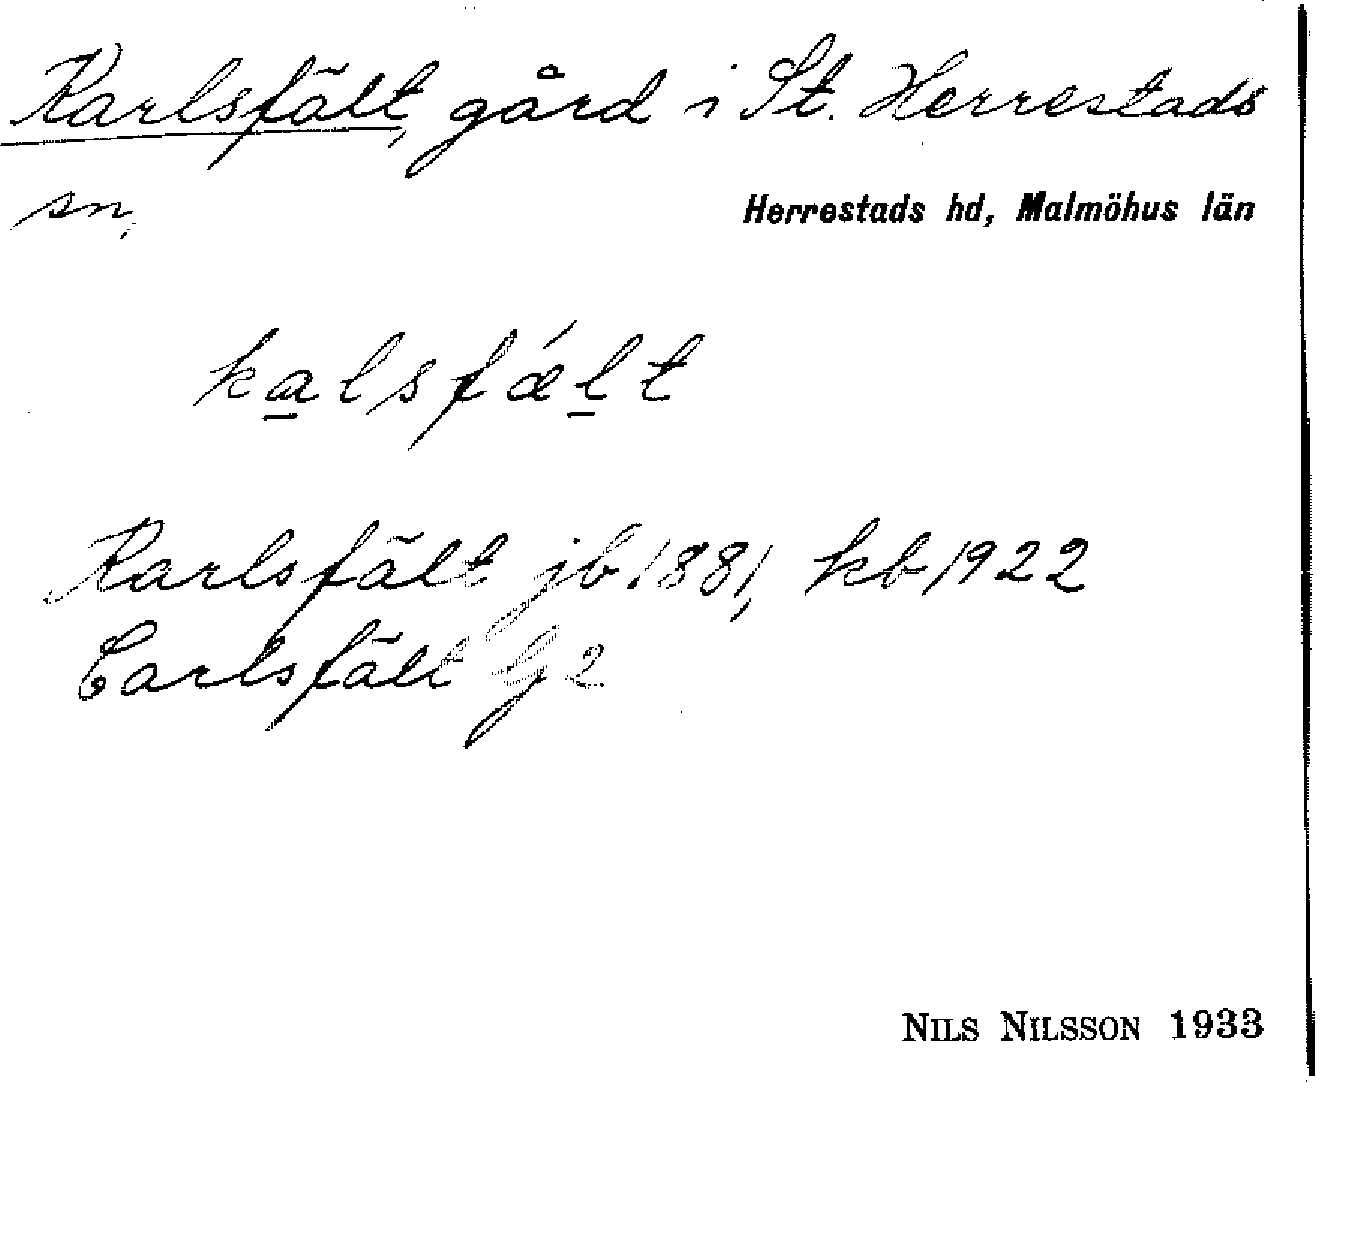 Karlsfält, gård i St. Herrestads
sn,
Herrestads hd, Malmöhus län
kalsfǽlt
Karlsfält jb 1881, kb 1922
Carlsfält G 2
NILS NILSSON 1933